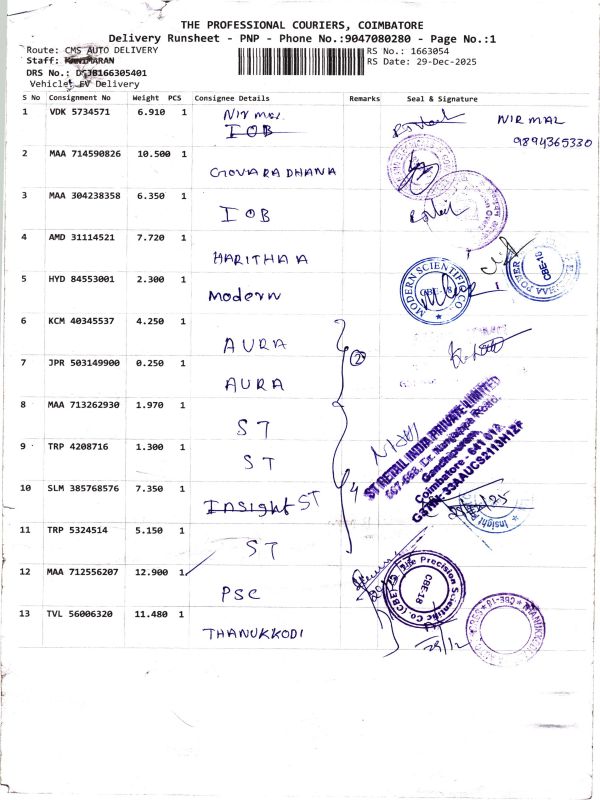 THE PROFESSIONAL COURIERS, COIMBATORE
Delivery Runsheet - PNP - Phone No.:9047080280 - Page No.:1
Route: CMS AUTO DELIVERY
Staff: KANIMARAN
DRS No.: DJB166305401
Vehicle: EV Delivery
RS No.: 1663054
RS Date: 29-Dec-2025
S No Consignment No Weight PCS Consignee Details Remarks Seal & Signature
1 VDK 5734571 6.910 1 NIRMAL IOB NIRMAL
9894365330
2 MAA 714590826 10.500 1 GOVARADHANA
3 MAA 304238358 6.350 1 IOB
4 AMD 31114521 7.720 1 HARITHAA
CBE-16
5 HYD 84553001 2.300 1 Modern
MODERN SCIENTIFIC CO.
CBE-18
6 KCM 40345537 4.250 1 AURA
2
7 JPR 503149900 0.250 1 AURA
8 MAA 713262930 1.970 1 ST
ST RETAIL INDIA PRIVATE LIMITED
Gandhipuram,
Coimbatore - 641 012
9 TRP 4208716 1.300 1 ST
10 SLM 385768576 7.350 1 Insight ST
4
11 TRP 5324514 5.150 1 ST
12 MAA 712556207 12.900 1 PSC
The Precision Scientific Co. (CBE)
CBE-18
13 TVL 56006320 11.480 1 THANUKKODI
29/12